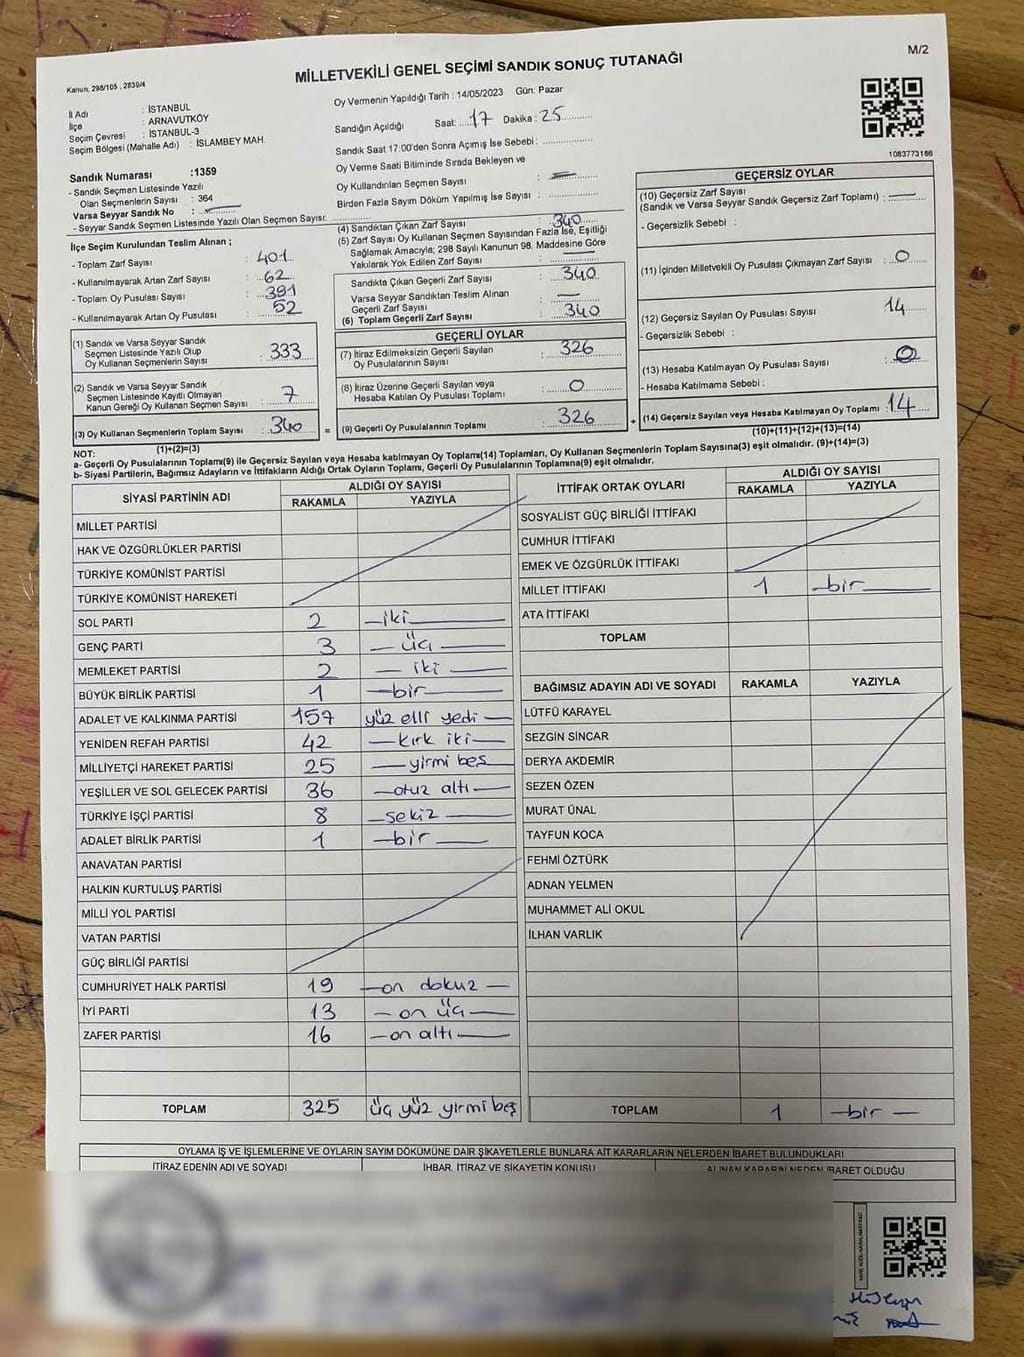 M/2
MİLLETVEKİLİ GENEL SEÇİMİ SANDIK SONUÇ TUTANAĞI
Kanun: 298/105 , 2839/4
İl Adı : İSTANBUL
İlçe : ARNAVUTKÖY
Seçim Çevresi : İSTANBUL-3
Seçim Bölgesi (Mahalle Adı) : İSLAMBEY MAH
Sandık Numarası :1359
- Sandık Seçmen Listesinde Yazılı
Olan Seçmenlerin Sayısı : 364
Varsa Seyyar Sandık No :
- Seyyar Sandık Seçmen Listesinde Yazılı Olan Seçmen Sayısı:
İlçe Seçim Kurulundan Teslim Alınan ;
- Toplam Zarf Sayısı : 401
- Kullanılmayarak Artan Zarf Sayısı : 62
- Toplam Oy Pusulası Sayısı : 391
- Kullanılmayarak Artan Oy Pusulası : 52
(1) Sandık ve Varsa Seyyar Sandık
Seçmen Listesinde Yazılı Olup
Oy Kullanan Seçmenlerin Sayısı : 333
(2) Sandık ve Varsa Seyyar Sandık
Seçmen Listesinde Kayıtlı Olmayan
Kanun Gereği Oy Kullanan Seçmen Sayısı : 7
(3) Oy Kullanan Seçmenlerin Toplam Sayısı : 340
(1)+(2)=(3)
Oy Vermenin Yapıldığı Tarih : 14/05/2023 Gün: Pazar
Sandığın Açıldığı Saat: 17 Dakika : 25
Sandık Saat 17:00'den Sonra Açımış İse Sebebi :
Oy Verme Saati Bitiminde Sırada Bekleyen ve
Oy Kullandırılan Seçmen Sayısı : —
Birden Fazla Sayım Döküm Yapılmış İse Sayısı :
(4) Sandıktan Çıkan Zarf Sayısı : 340
(5) Zarf Sayısı Oy Kullanan Seçmen Sayısından Fazla İse, Eşitliği
Sağlamak Amacıyla; 298 Sayılı Kanunun 98. Maddesine Göre
Yakılarak Yok Edilen Zarf Sayısı : —
Sandıkta Çıkan Geçerli Zarf Sayısı : 340
Varsa Seyyar Sandıktan Teslim Alınan
Geçerli Zarf Sayısı : —
(6) Toplam Geçerli Zarf Sayısı : 340
GEÇERLİ OYLAR
(7) İtiraz Edilmeksizin Geçerli Sayılan
Oy Pusulalarının Sayısı : 326
(8) İtiraz Üzerine Geçerli Sayılan veya
Hesaba Katılan Oy Pusulası Toplamı : 0
= (9) Geçerli Oy Pusulalarının Toplamı : 326
1083773166
GEÇERSİZ OYLAR
(10) Geçersiz Zarf Sayısı
(Sandık ve Varsa Seyyar Sandık Geçersiz Zarf Toplamı) : —
- Geçersizlik Sebebi :
(11) İçinden Milletvekili Oy Pusulası Çıkmayan Zarf Sayısı : 0
(12) Geçersiz Sayılan Oy Pusulası Sayısı : 14
- Geçersizlik Sebebi :
(13) Hesaba Katılmayan Oy Pusulası Sayısı : 0
- Hesaba Katılmama Sebebi :
+ (14) Geçersiz Sayılan veya Hesaba Katılmayan Oy Toplamı : 14
(10)+(11)+(12)+(13)=(14)
NOT:
a- Geçerli Oy Pusulalarının Toplamı(9) ile Geçersiz Sayılan veya Hesaba katılmayan Oy Toplam(14) Toplamları, Oy Kullanan Seçmenlerin Toplam Sayısına(3) eşit olmalıdır. (9)+(14)=(3)
b- Siyasi Partilerin, Bağımsız Adayların ve İttifakların Aldığı Ortak Oyların Toplamı, Geçerli Oy Pusulalarının Toplamına(9) eşit olmalıdır.
SİYASİ PARTİNİN ADI ALDIĞI OY SAYISI
RAKAMLA YAZIYLA
MİLLET PARTİSİ
HAK VE ÖZGÜRLÜKLER PARTİSİ
TÜRKİYE KOMÜNİST PARTİSİ
TÜRKİYE KOMÜNİST HAREKETİ
SOL PARTİ 2 iki
GENÇ PARTİ 3 üç
MEMLEKET PARTİSİ 2 iki
BÜYÜK BİRLİK PARTİSİ 1 bir
ADALET VE KALKINMA PARTİSİ 157 yüz elli yedi
YENİDEN REFAH PARTİSİ 42 kırk iki
MİLLİYETÇİ HAREKET PARTİSİ 25 yirmi beş
YEŞİLLER VE SOL GELECEK PARTİSİ 36 otuz altı
TÜRKİYE İŞÇİ PARTİSİ 8 sekiz
ADALET BİRLİK PARTİSİ 1 bir
ANAVATAN PARTİSİ
HALKIN KURTULUŞ PARTİSİ
MİLLİ YOL PARTİSİ
VATAN PARTİSİ
GÜÇ BİRLİĞİ PARTİSİ
CUMHURİYET HALK PARTİSİ 19 on dokuz
İYİ PARTİ 13 on üç
ZAFER PARTİSİ 16 on altı
TOPLAM 325 üç yüz yirmi beş
İTTİFAK ORTAK OYLARI ALDIĞI OY SAYISI
RAKAMLA YAZIYLA
SOSYALİST GÜÇ BİRLİĞİ İTTİFAKI
CUMHUR İTTİFAKI
EMEK VE ÖZGÜRLÜK İTTİFAKI
MİLLET İTTİFAKI 1 bir
ATA İTTİFAKI
TOPLAM
BAĞIMSIZ ADAYIN ADI VE SOYADI RAKAMLA YAZIYLA
LÜTFÜ KARAYEL
SEZGİN SİNCAR
DERYA AKDEMİR
SEZEN ÖZEN
MURAT ÜNAL
TAYFUN KOCA
FEHMİ ÖZTÜRK
ADNAN YELMEN
MUHAMMET ALİ OKUL
İLHAN VARLIK
TOPLAM 1 bir
OYLAMA İŞ VE İŞLEMLERİNE VE OYLARIN SAYIM DÖKÜMÜNE DAİR ŞİKAYETLERLE BUNLARA AİT KARARLARIN NELERDEN İBARET BULUNDUKLARI
İTİRAZ EDENİN ADI VE SOYADI İHBAR, İTİRAZ VE ŞİKAYETİN KONUSU ALINAN KARARIN NEDEN İBARET OLDUĞU